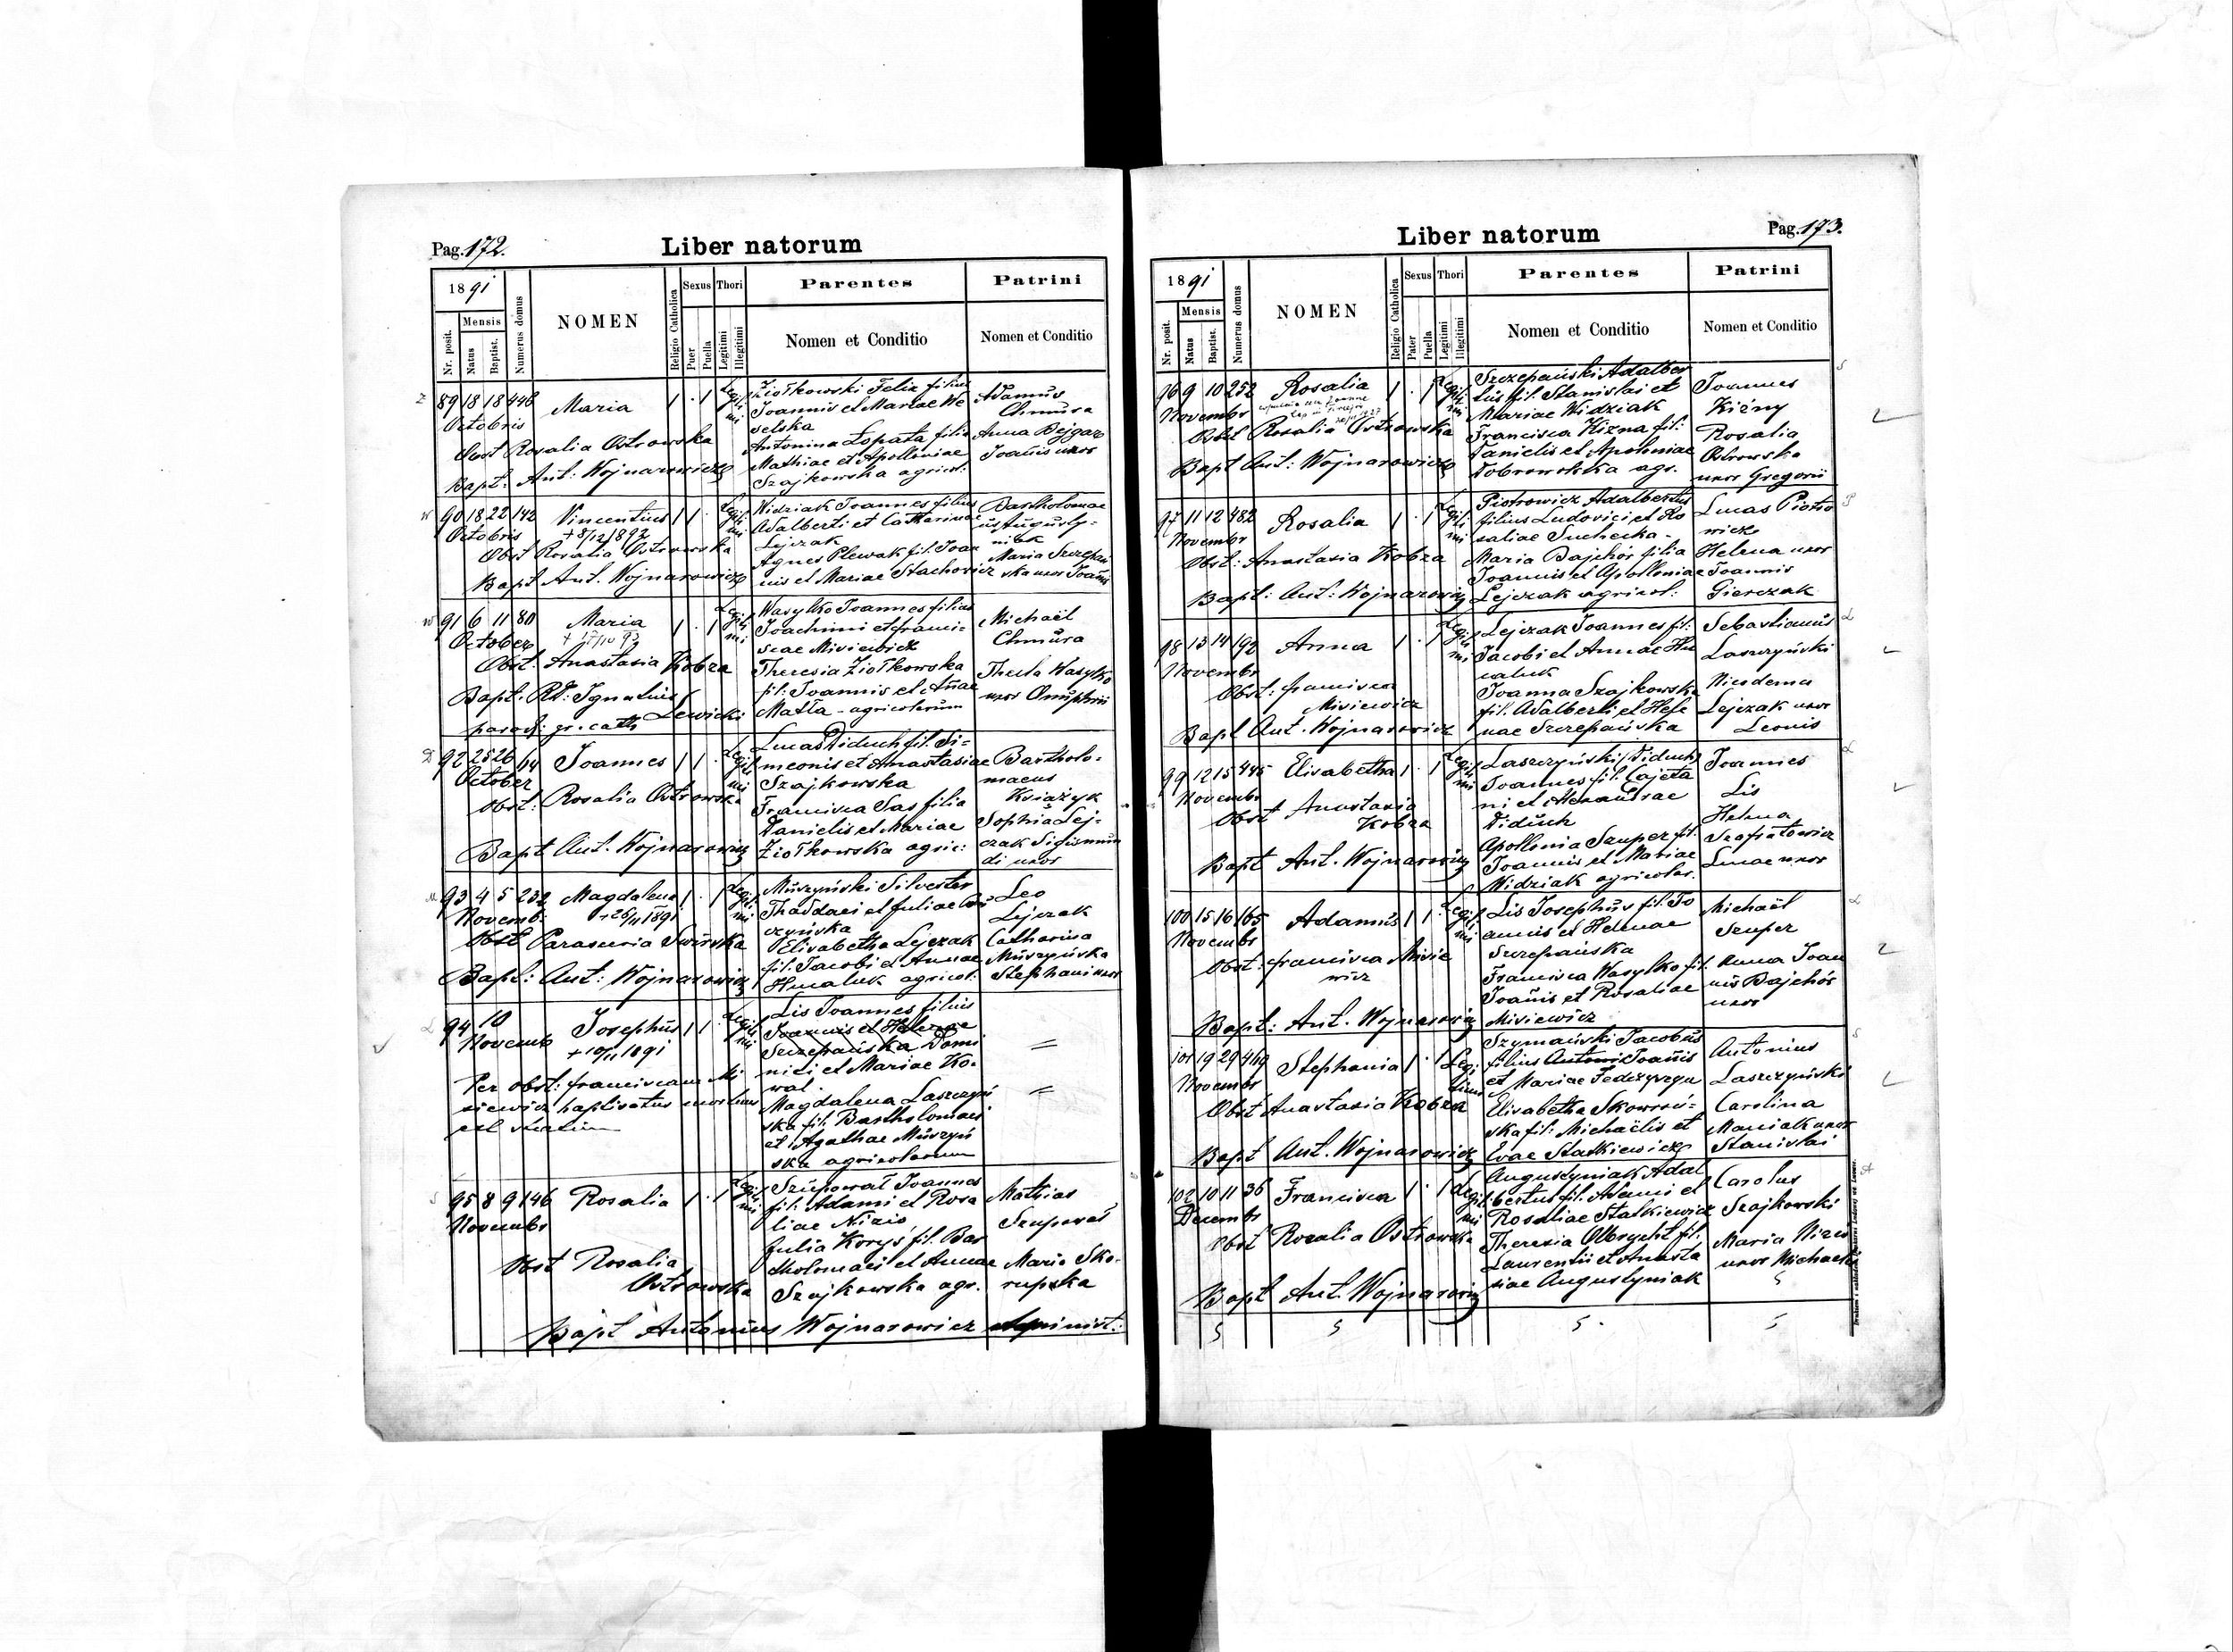 Pag. 172.
Liber natorum
1891
Nr. posit.
Mensis
Natus
Baptist.
Numerus domus
NOMEN
Religio Catholica
Sexus
Puer
Puella
Thori
Legitimi
Illegitimi
Parentes
Nomen et Conditio
Patrini
Nomen et Conditio
89 18 18 448 Maria 1 · 1 Legitimi
Octobris
Obst Rosalia Ostrowska
Bapt: Ant: Wojnarowicz
Ziołkowski Felix filius
Joannis et Mariae We
selska
Antonina Łopata filia
Mathiae et Apolloniae
Szajkowska agricol:
Adamus
Chmura
Anna Bejgar
Joanis uxor
90 18 22 142 Vincentius 1 1 · Legitimi
Octobris + 8/12/1892
Obst Rosalia Ostrowska
Bapt Ant. Wojnarowicz
Widziak Joannes filius
Adalberti et Catharinae
Lejczak
Agnes Plewak fil. Joan
nis et Mariae Stachowicz
Bartholomae
us Augusty-
niak
Maria Szczepań
ska uxor Joanis
91 6 11 80 Maria 1 · 1 Legitimi
October
Obst: Anastasia Kobza
Bapt. Rd: Ignatius
Lewicki
paroch: gr. cath
Wasylko Joannes filius
Joachimi et Franci-
scae Misiewicz
Theresia Ziołkowska
fil: Joannis et Anae
Matła - agricolarum
Michaël
Chmura
Thecla Wasylko
uxor Onuphrii
92 25 26 14 Joannes 1 1 · Legitimi
October
Obst: Rosalia Ostrowska
Bapt Ant. Wojnarowicz
Lucas Diduch fil. Si-
meonis et Anastasiae
Szajkowska
Francisca Sas filia
Danielis et Mariae
Ziołkowska agric:
Bartholo-
maeus
Książyk
Sophia Lej-
czak Sigismun
di uxor
93 4 5 232 Magdalena 1 · 1 Legitimi
Novemb. + 26/11 1891
Obst Parascevia
Bapt: Ant: Wojnarowicz
Muszyński Silvester
Thaddaei et Juliae
Elisabetha Lejczak
fil. Jacobi et Annae
Hucaluk agricol:
Leo
Lejczak
Catharina
Muszyńska
Stephani uxor
94 10 Josephus 1 1 · Legitimi
Novemb + 10/11 1891
Per obst: Franciscam Mi
siewicz baptisatus mortuus
est statim
Lis Joannes filius
Joannis et Helenae
Szczepańska Domi
nici et Mariae Ko-
wal
Magdalena Laszczyń
ska fil. Bartholomaei
et Agathae Muszyń
ska agricolarum
95 8 9 146 Rosalia 1 · 1 Legitimi
Novembr
Obst Rosalia
Ostrowska
Szupował Joannes
fil. Adami et Rosa
liae Nizio
Julia Korys fil. Bar
tholomaei et Annae
Szajkowska agr.
Mathias
Maria Sko-
rupska
Bapt Antonius Wojnarowicz
Pag. 173.
Liber natorum
1891
Nr. posit.
Mensis
Natus
Baptist.
Numerus domus
NOMEN
Religio Catholica
Sexus
Pater
Puella
Thori
Legitimi
Illegitimi
Parentes
Nomen et Conditio
Patrini
Nomen et Conditio
96 9 10 252 Rosalia 1 · 1 Legitimi
Novembr
Obst Rosalia Ostrowska
Bapt Ant: Wojnarowicz
Szczepański Adalber
tus fil. Stanislai et
Mariae Widziak
Francisca Kizna fil:
Danielis et Apoloniae
Dobrowolska agr.
Joannes
Kizny
Rosalia
Ostrowska
uxor Gregorii
97 11 12 482 Rosalia 1 · 1 Legitimi
Novembr
Obst: Anastasia Kobza
Bapt: Ant: Wojnarowicz
Piotrowicz Adalbertus
filius Ludovici et Ro
saliae Suchecka -
Maria Bajchór filia
Joannis et Apolloniae
Lejczak agricol:
Lucas Piotro
wicz
Helena uxor
Joannis
Gierczak
98 13 14 192 Anna 1 · 1 Legitimi
Novembr
Obst: Francisca
Misiewicz
Bapt Ant. Wojnarowicz
Lejczak Joannes fil:
Jacobi et Annae Hu
caluk
Joanna Szajkowska
fil. Adalberti et Hele
nae Szczepańska
Sebastianus
Laszczyński
Nicodema
Lejczak uxor
Leonis
99 12 15 445 Elisabetha 1 · 1 Legitimi
Novembr
Obst Anastasia
Kobza
Bapt Ant. Wojnarowicz
Laszczyński (Diduch)
Joannes fil. Cajeta
ni et Alexandrae
Diduch
Apollonia Szuper fil.
Joannis et Mariae
Widziak agricolar.
Joannes
Lis
Helena
Lucae uxor
100 15 16 165 Adamus 1 1 · Legitimi
Novembr
Obst: Francisca Misie
wicz
Bapt: Ant. Wojnarowicz
Lis Josephus fil. Jo
annis et Helenae
Szczepańska
Francisca Wasylko fil.
Joanis et Rosaliae
Misiewicz
Michaël
Szuper
Anna Joan
nis Bajchór
uxor
101 19 29 469 Stephania 1 · 1 Legitimi
Novembr
Obst Anastasia Kobza
Bapt Ant. Wojnarowicz
Szymański Jacobus
filius Antoni Joanis
et Mariae
Elisabetha Skowroń-
ska fil: Michaëlis et
Evae Statkiewicz
Antonius
Laszczyński
Carolina
Maniak uxor
Stanislai
102 10 11 36 Francisca 1 · 1 Legitimi
Decembr
Obst Rosalia Ostrowska
Bapt Ant. Wojnarowicz
Augustyniak Adal
bertus fil. Adami et
Rosaliae Statkiewicz
Theresia Olbrycht fil.
Laurentii et Anasta
siae Augustyniak
Carolus
Szajkowski
Maria Nizio
uxor Michaelis